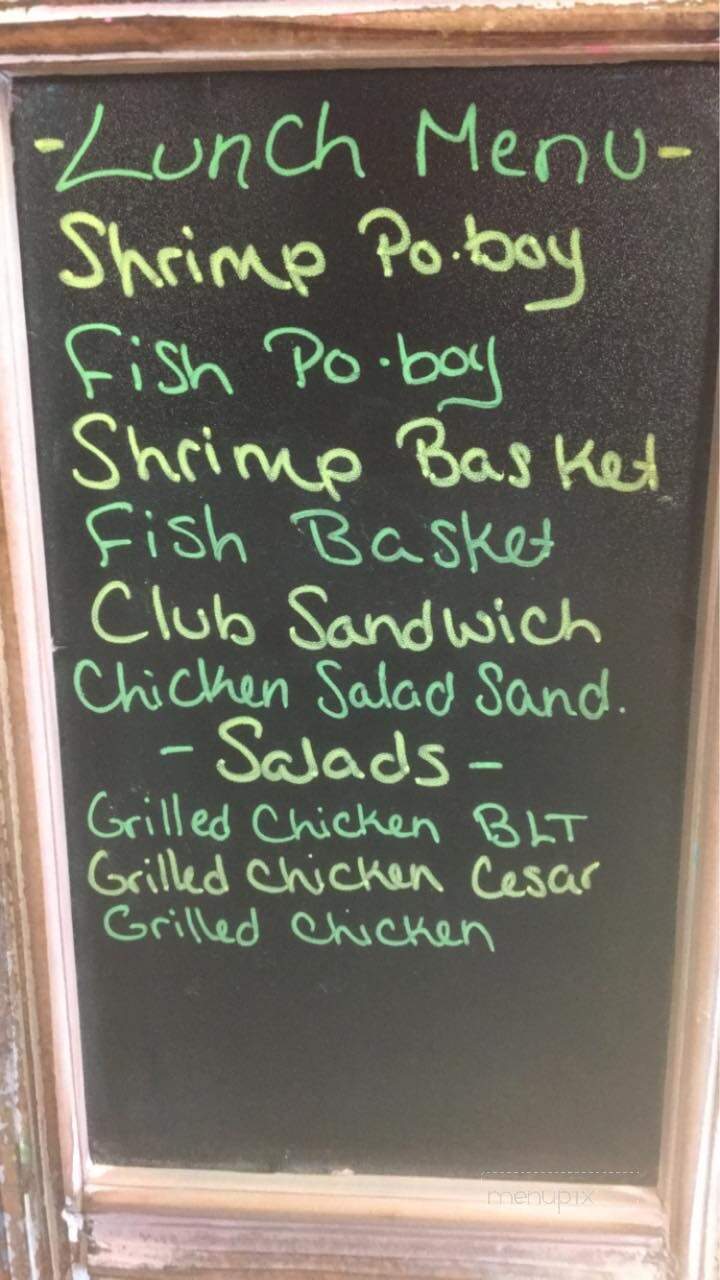 -Lunch Menu-
Shrimp Po.boy
Fish Po.boy
Shrimp Basket
Fish Basket
Club Sandwich
Chicken Salad Sand.
- Salads -
Grilled Chicken BLT
Grilled Chicken Cesar
Grilled Chicken
menupix